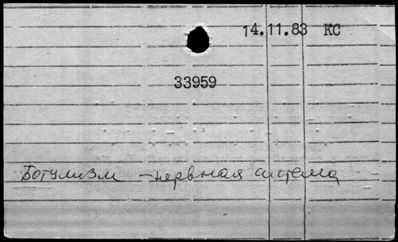 14.11.83 КС
33959
Ботулизм - нервная система